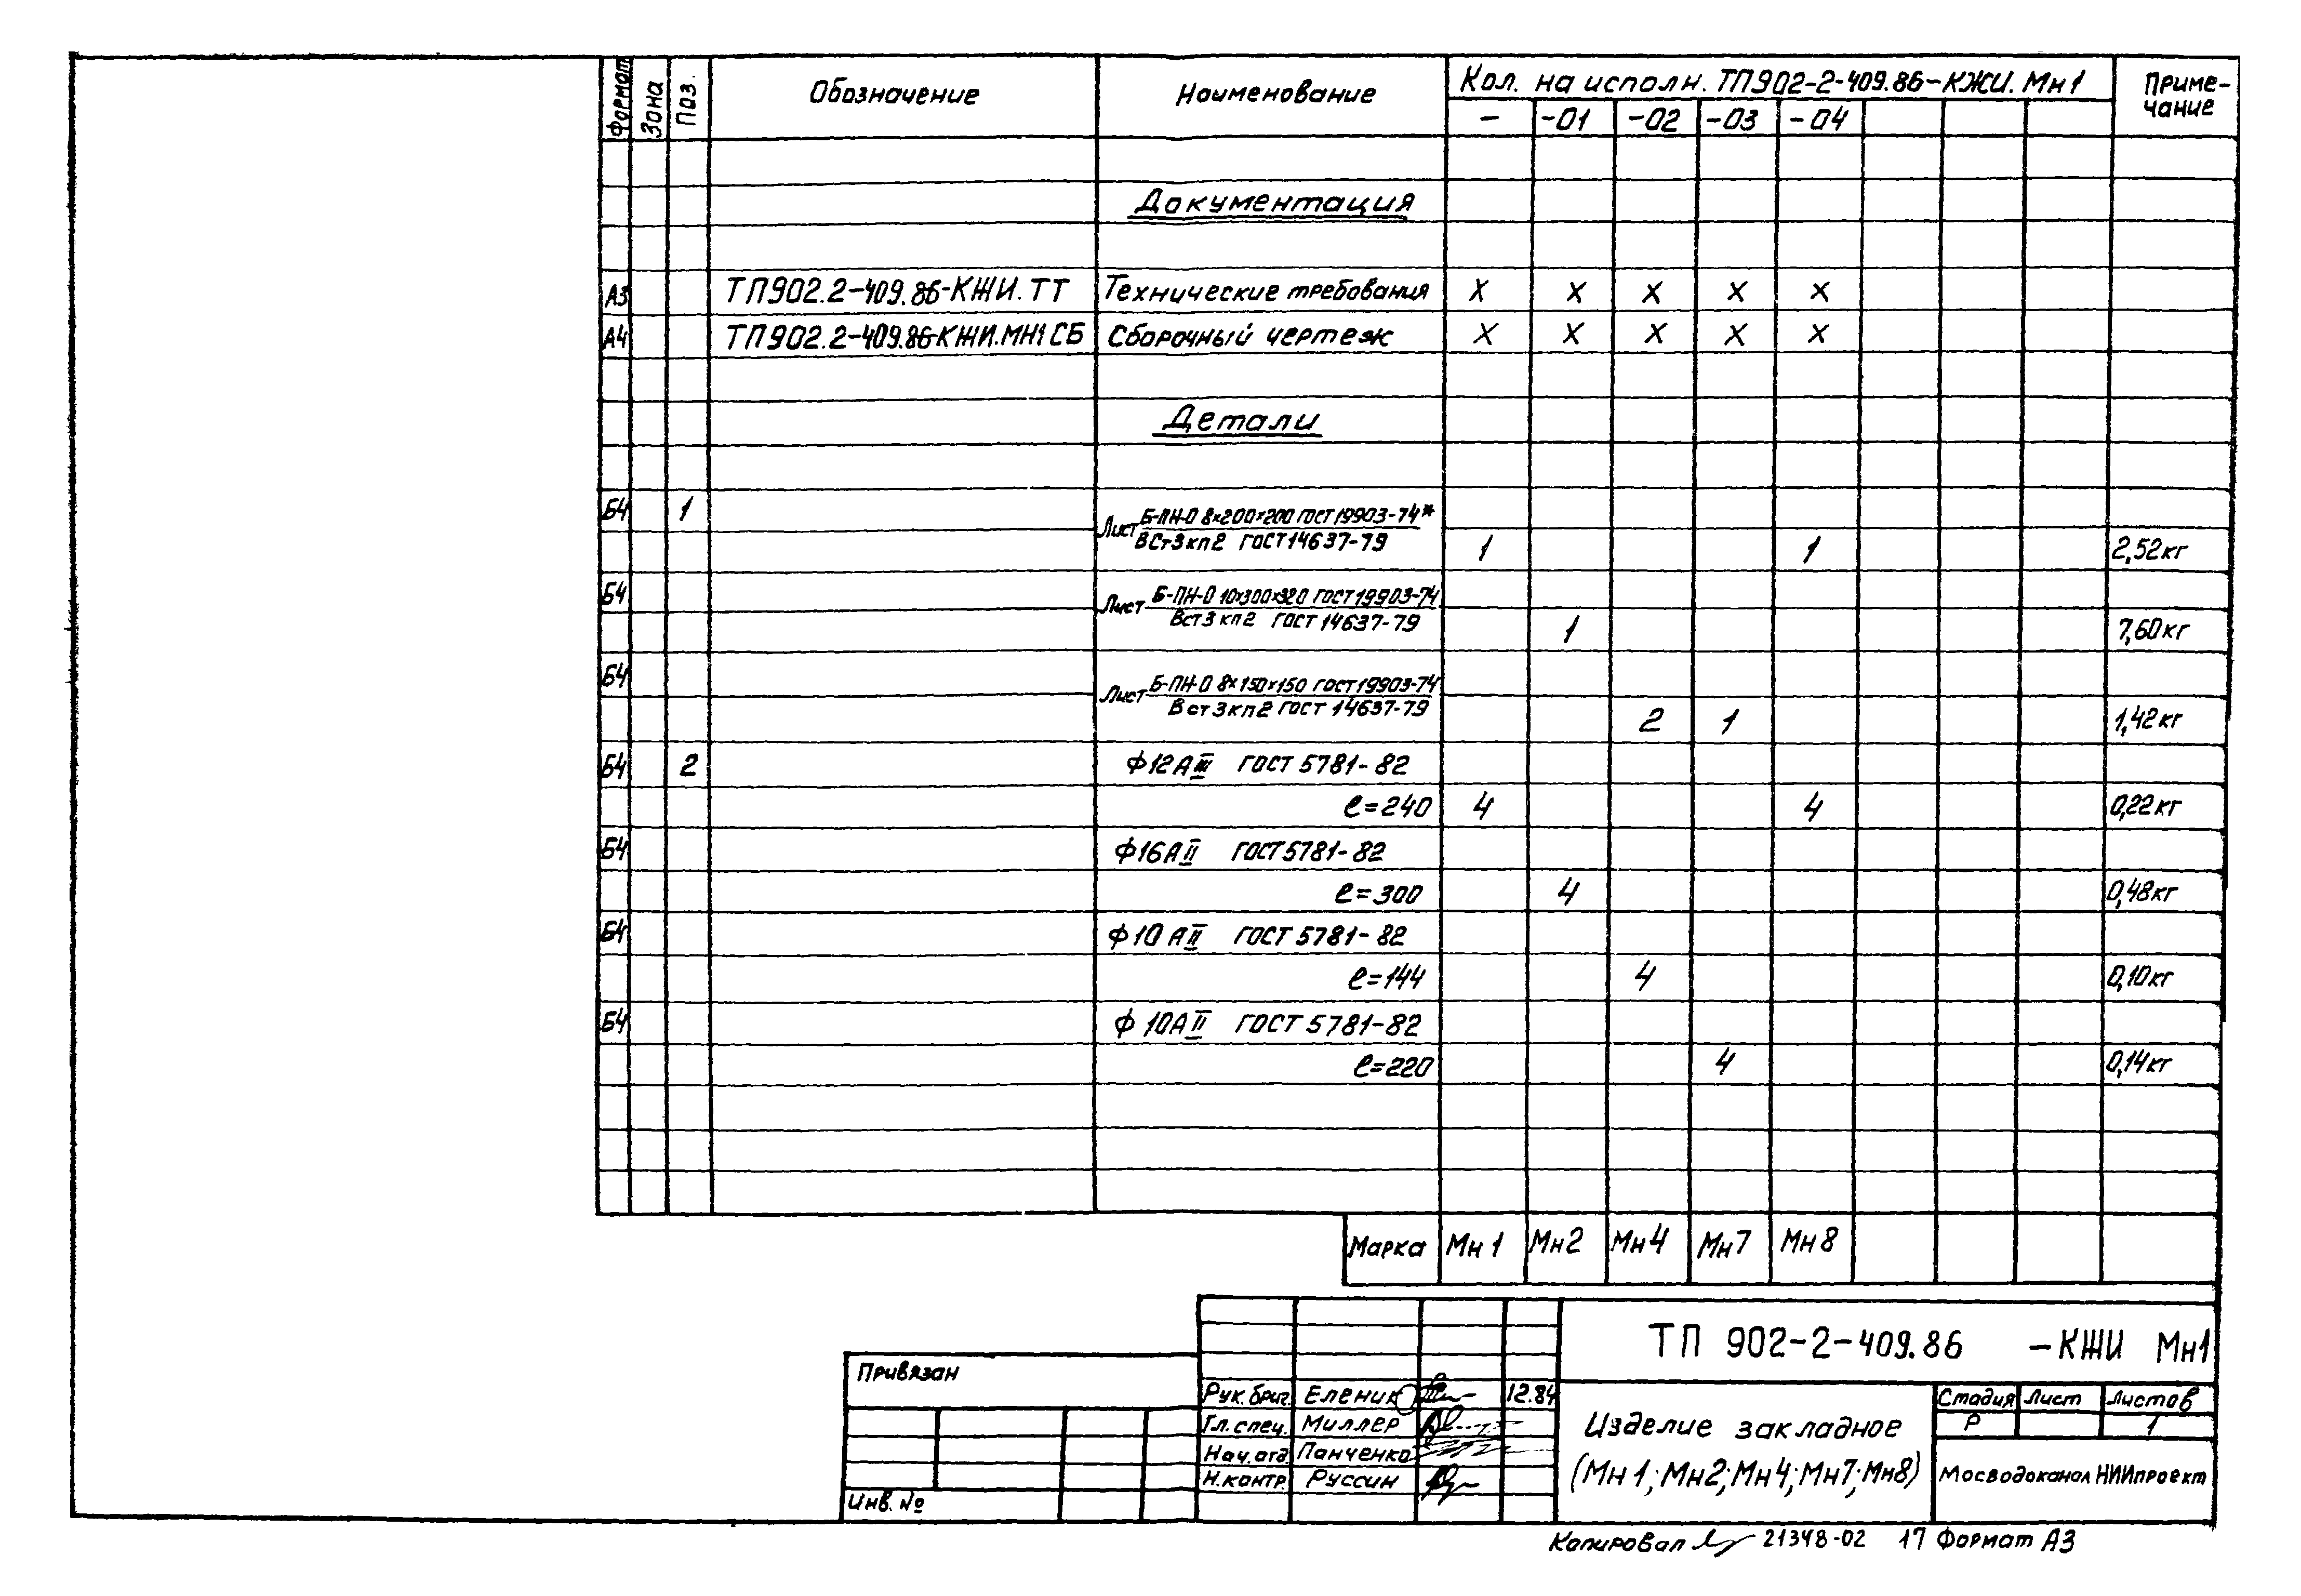 Формат Зона Поз. Обозначение Наименование Кол. на исполн. ТП902-2-409.86-КЖИ. Мн1 Приме-
чание
- -01 -02 -03 -04
Документация
А3 ТП902.2-409.86-КЖИ.ТТ Технические требования X X X X X
А4 ТП902.2-409.86-КЖИ.МН1СБ Сборочный чертеж X X X X X
Детали
Б4 1 Лист Б-ПН-О 8×200×200 ГОСТ 19903-74*
ВСт3кп2 ГОСТ 14637-79 1 1 2,52кг
Б4 Лист Б-ПН-О 10×300×320 ГОСТ 19903-74
Вст3кп2 ГОСТ 14637-79 1 7,60кг
Б4 Лист Б-ПН-О 8×150×150 ГОСТ 19903-74
Вст3кп2 ГОСТ 14637-79 2 1 1,42кг
Б4 2 Ф12АIII ГОСТ 5781-82
ℓ=240 4 4 0,22кг
Б4 Ф16АII ГОСТ 5781-82
ℓ=300 4 0,48кг
Б4 Ф10АII ГОСТ 5781-82
ℓ=144 4 0,10кг
Б4 Ф10АII ГОСТ 5781-82
ℓ=220 4 0,14кг
Марка Мн1 Мн2 Мн4 Мн7 Мн8
ТП 902-2-409.86 -КЖИ Мн1
Привязан
Рук. бриг. Еленик 12.84
Гл. спец. Миллер
Нач. отд Панченко
Н. контр. Руссин
Инв. №
Изделие закладное
(Мн1; Мн2; Мн4; Мн7; Мн8)
Стадия Лист Листов
Р 1
Мосводоканал НИИпроект
Копировал 21348-02 17 Формат А3